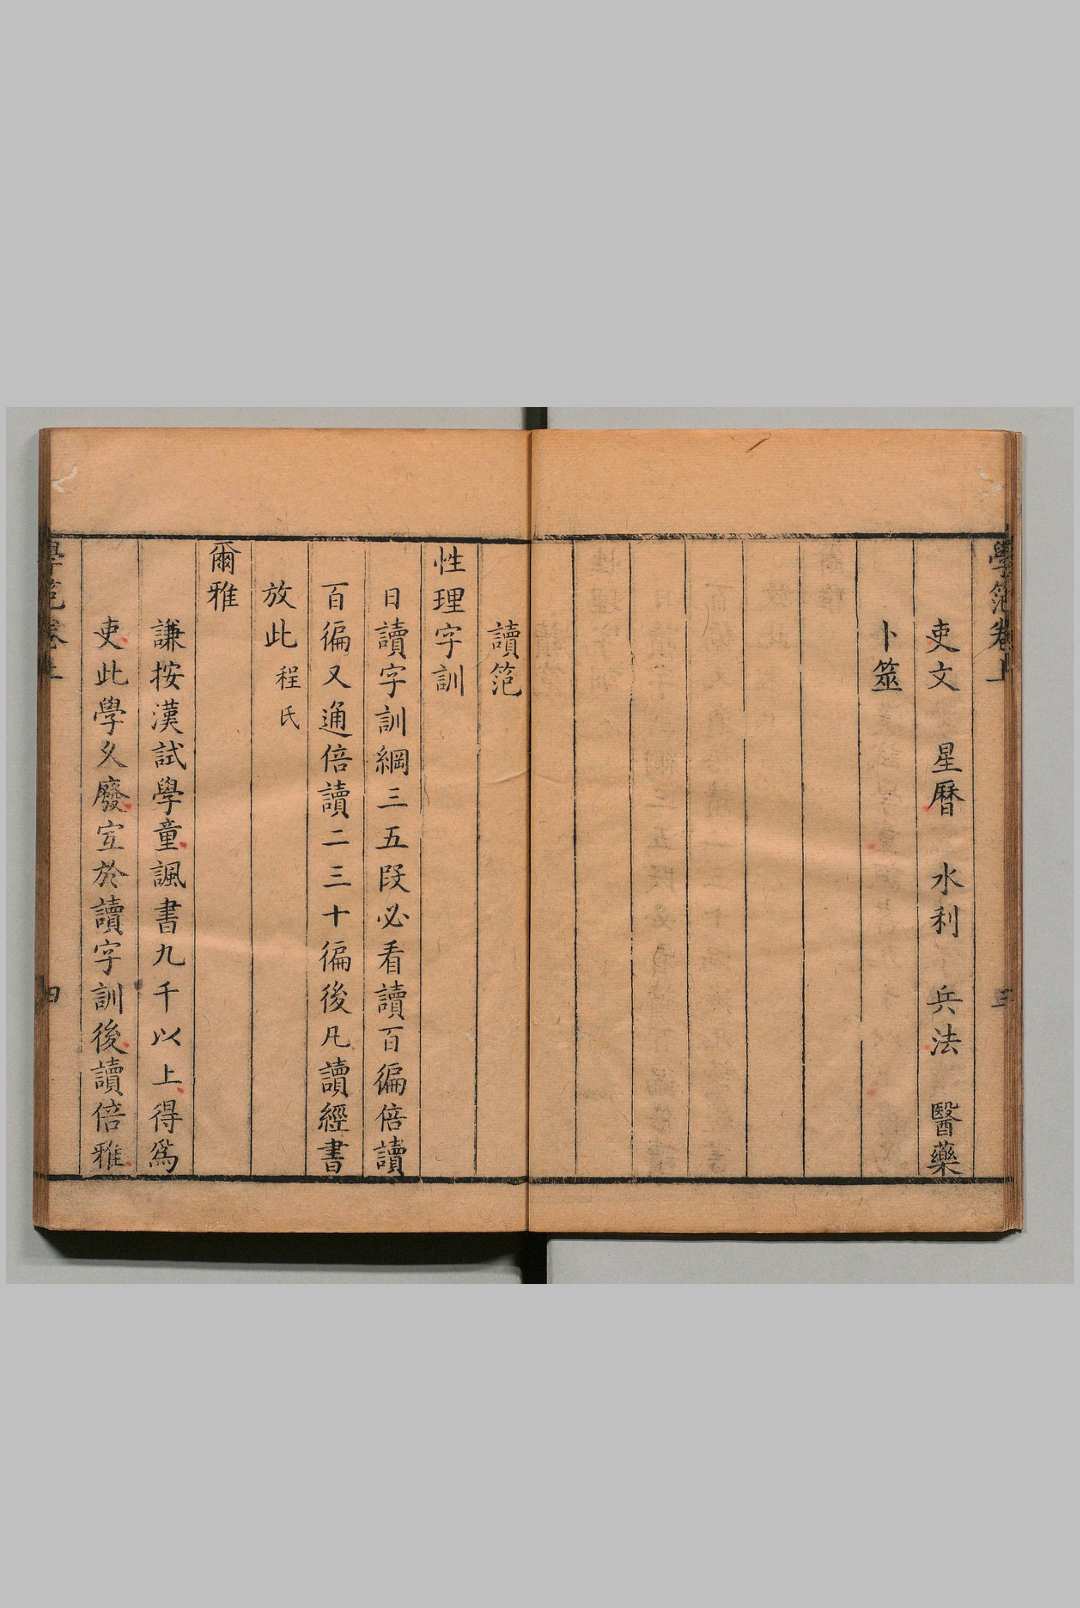 學范卷上
三
吏文 星曆 水利 兵法 醫藥
卜筮
讀范
性理字訓
日讀字訓綱三五段必看讀百徧倍讀
百徧又通倍讀二三十徧後凡讀經書
放此程氏
爾雅
謙按漢試學童諷書九千以上得爲
吏此學久廢宜於讀字訓後讀倍雅
學范卷上
四